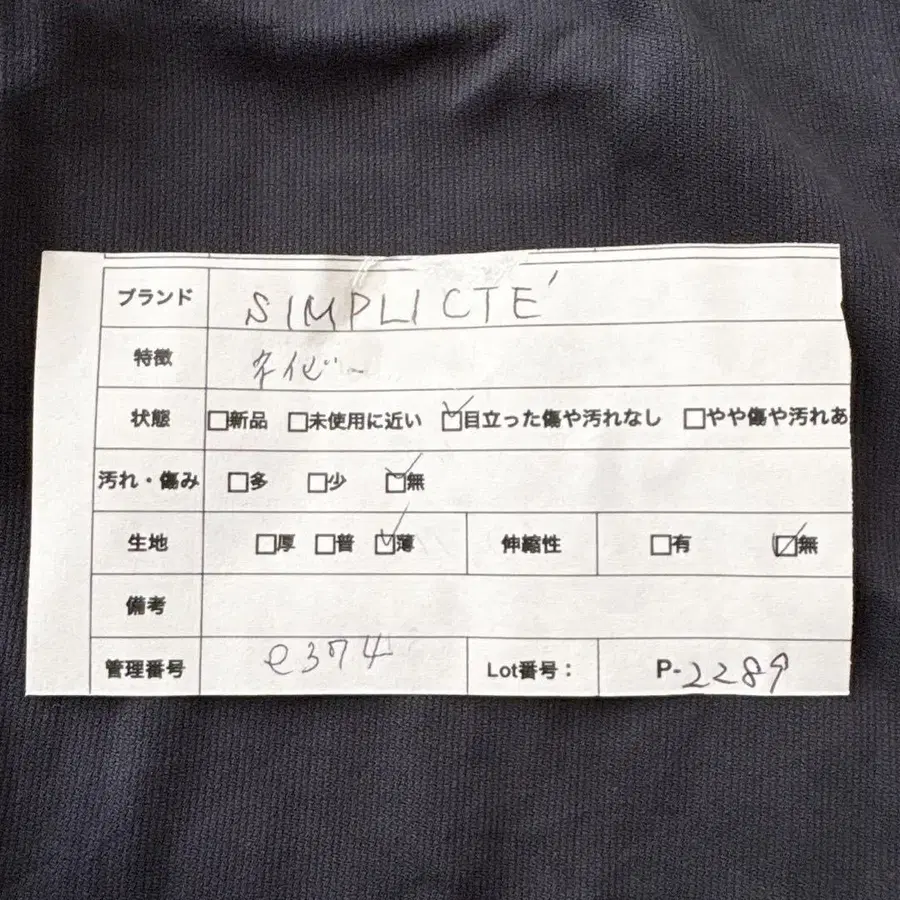 ブランド SIMPLICTÉ
特徴 ネイビー
状態 □新品 □未使用に近い ☑目立った傷や汚れなし □やや傷や汚れあ
汚れ・傷み □多 □少 ☑無
生地 □厚 □普 ☑薄 伸縮性 □有 ☑無
備考
管理番号 e374 Lot番号： P-2289